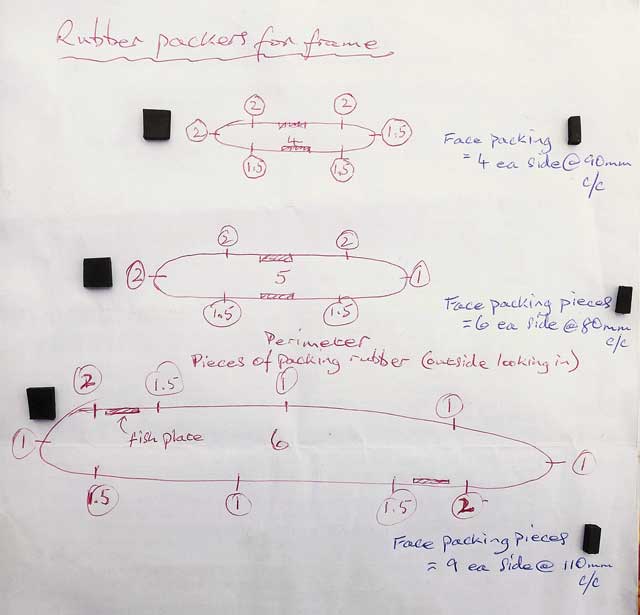 Rubber packers for frame
2 2
2 4 1.5
1.5 1.5
Face packing
= 4 ea side @ 90mm
c/c
2 2
2 5 1
1.5 1.5
Face packing pieces
= 6 ea side @ 80mm
c/c
Perimeter
Pieces of packing rubber (outside looking in)
2 1.5 1 1
fish plate
1 6 1
1.5 1 1.5 2
Face packing pieces
= 9 ea side @ 110mm
c/c